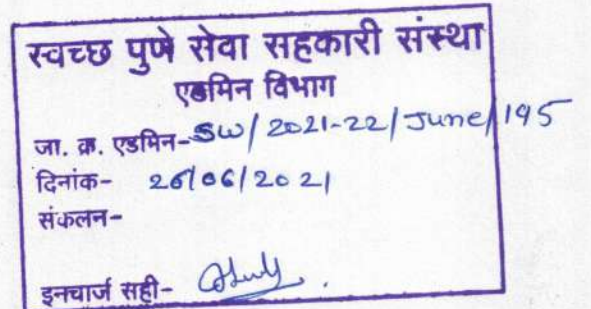 स्वच्छ पुणे सेवा सहकारी संस्था
एडमिन विभाग
जा. क्र. एडमिन-SW/2021-22/June/195
दिनांक- 26/06/2021
संकलन-
इनचार्ज सही-